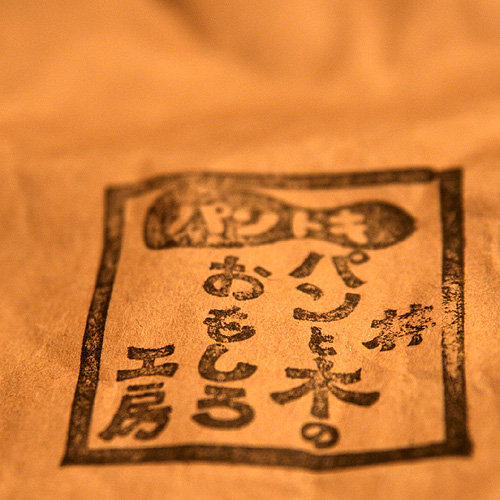 パントキ
パンと木の
おもしろ
工房